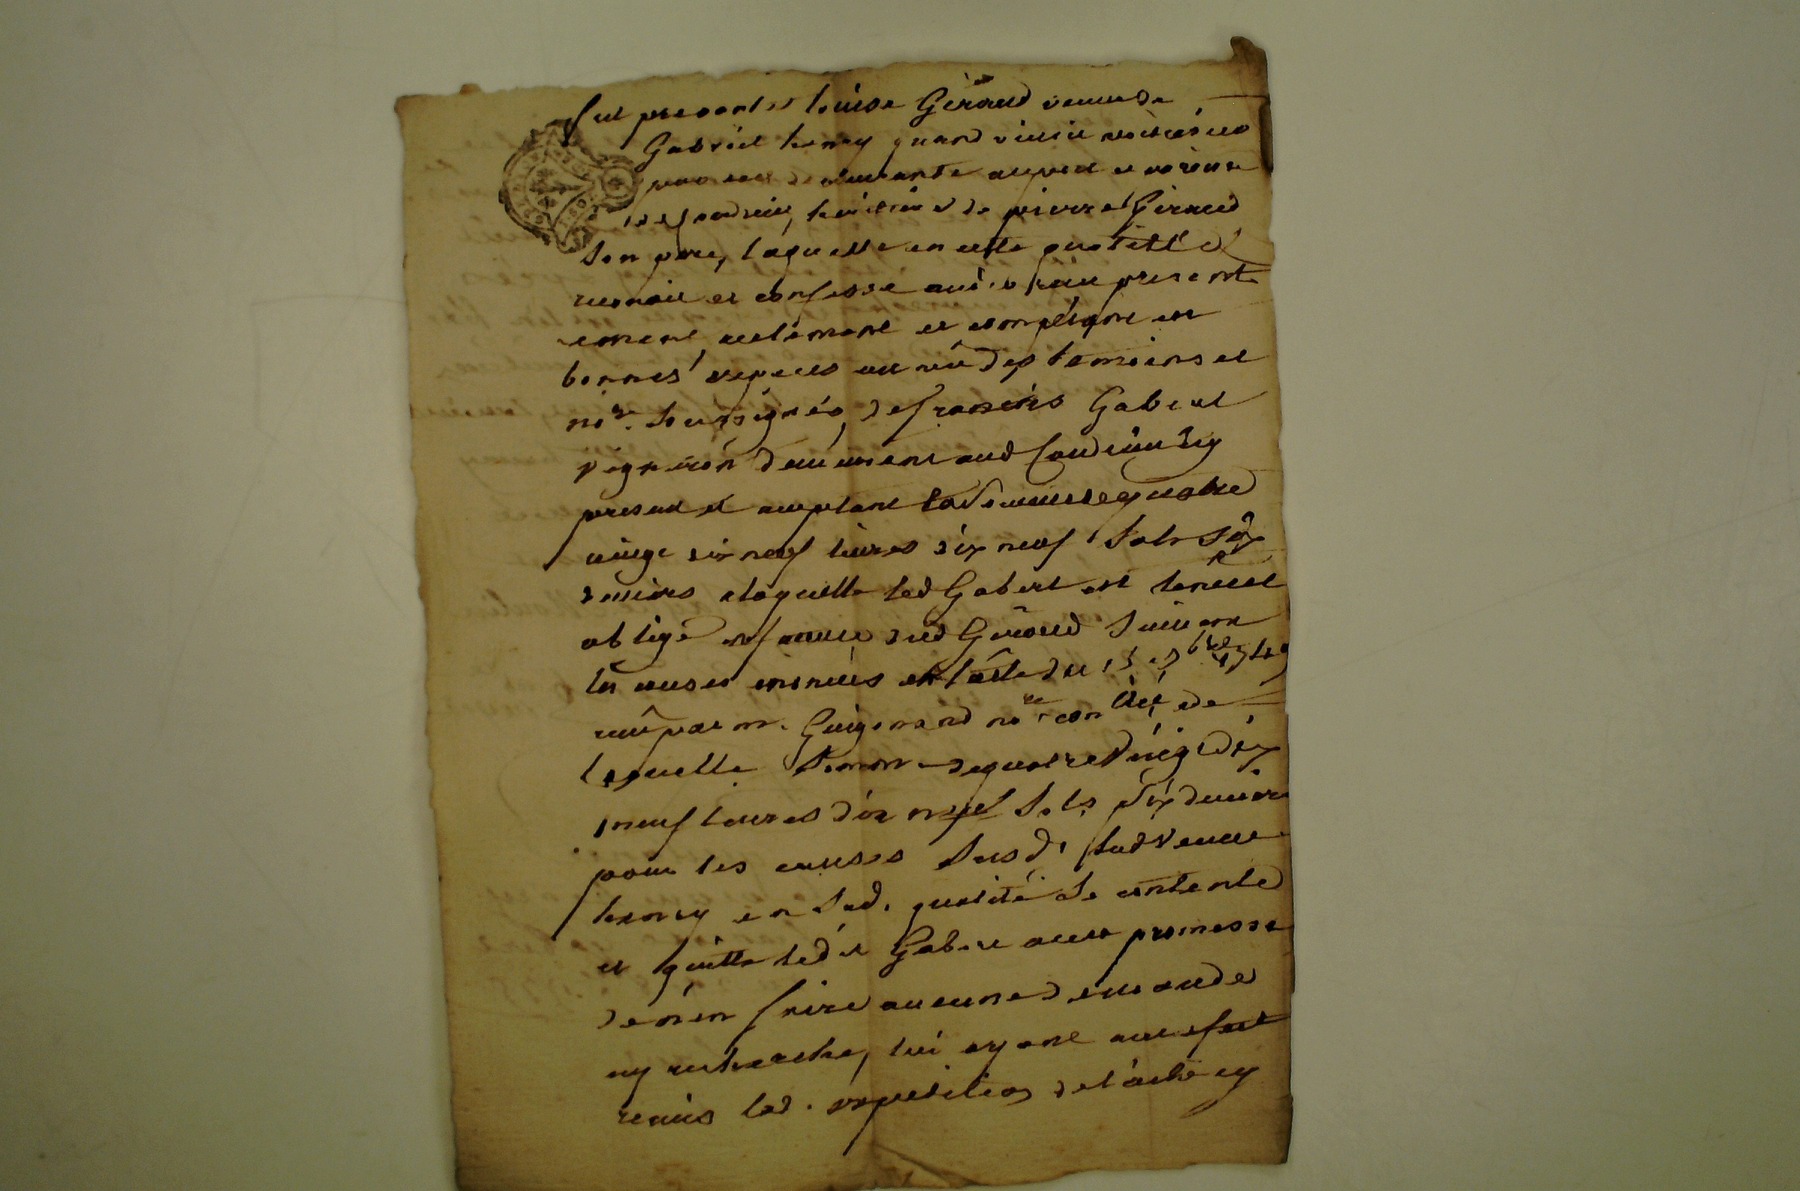 fut presente louise Géraud veuve de
Gabriel henry quand vivoit
demeurante au
heritiere de pierre Géraud
son pere, laquelle en cette qualitté
reconoit et confesse avoir reçu presente
ement, reelement et comptant en
bonnes especes au vû des temoins et
nre. soussignés, de françois Gabert
vigneron demeurant aud
present et acceptant la somme de quatre
vingt dix neuf livres dix neuf sols six
deniers a laquelle led Gabert est tenu et
obligé en faveur dud Géraud suivant
les causes enoncés en l'acte du 1749
reçu par m. Guigonand nore
laquelle somme de quatre vingt dix
neuf livres dix neuf sols six deniers
pour les causes susd. lad veuve
henry en sad. qualité se contente
et quitte led it Gabert avec promesse
de n'en faire aucune demande
ny recherche, lui ayant
remis lad. expedition de l'acte cy